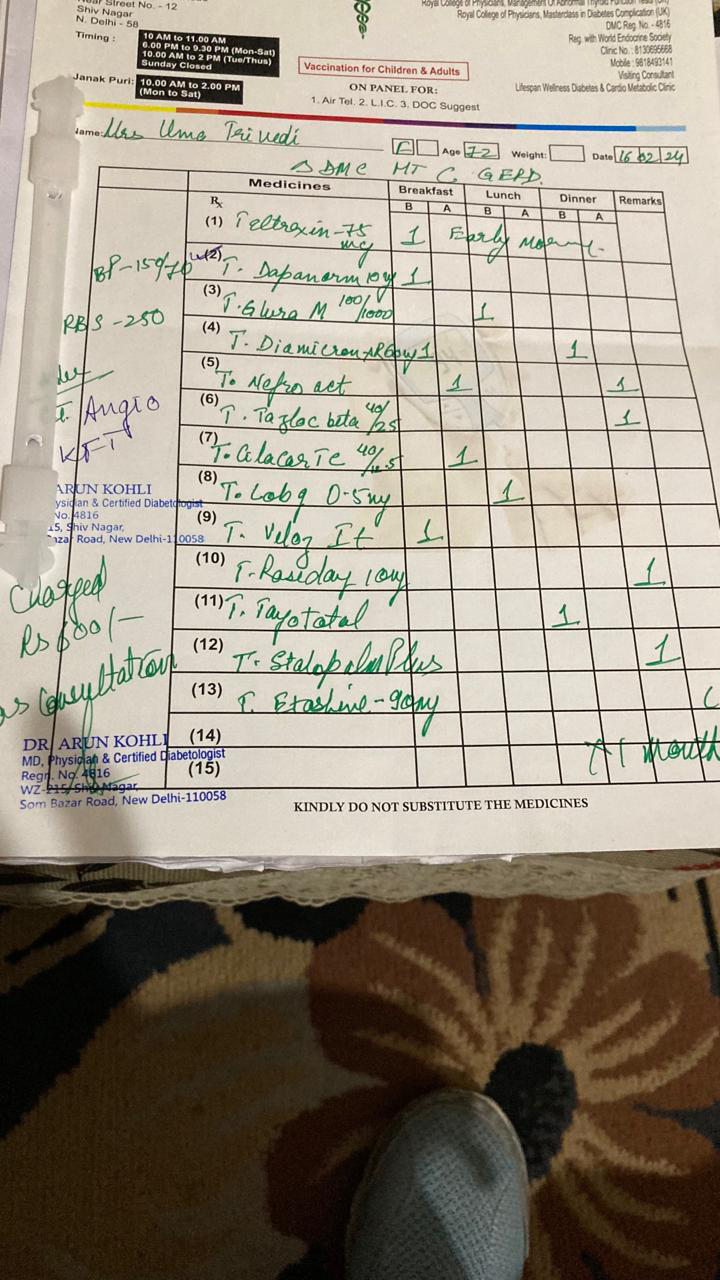 Near Street No. - 12
Shiv Nagar
N. Delhi - 58
Timing :
10 AM to 11.00 AM
6.00 PM to 9.30 PM (Mon-Sat)
10.00 AM to 2 PM (Tue/Thus)
Sunday Closed
Janak Puri:
10.00 AM to 2.00 PM
(Mon to Sat)
Vaccination for Children & Adults
ON PANEL FOR:
1. Air Tel. 2. L.I.C. 3. DOC Suggest
Royal College of Physicians, Masterclass in Diabetes Complication (UK)
DMC Reg. No. - 4816
Reg. with World Endocrine Society
Clinic No. : 8130695668
Mobile : 9818493141
Visiting Consultant
Lifespan Wellness Diabetes & Cardio Metabolic Clinic
Name: Mrs Uma Trivedi
F Age 72 Weight: Date 16 02 24
DMC HT C GERD
Medicines Breakfast Lunch Dinner Remarks
Rx B A B A B A
(1) Teltroxin-75 mg 1 Early
(2) T. Dapanorm 10mg 1
BP-150/70
(3) T. Glura M 100/1000 1
RBS -250
(4) T. Diamicron 1 1
(5) T. Nefro act 1 1
(6) T. Tazloc beta 40/25 1
Angio
KFT
(7) 1
(8) T. 0.5mg 1
(9) T. Veloz It 1
(10) T. Rosiday 10mg 1
(11) T. Tayo total 1
(12) T. Stalopam Plus 1
(13) T. 90mg
(14)
(15)
x 1 Month
ARUN KOHLI
ysician & Certified Diabetologist
No. 4816
15, Shiv Nagar,
azar Road, New Delhi-110058
Charged
Rs 600/-
as Consultation
DR. ARUN KOHLI
MD, Physician & Certified Diabetologist
Regn. No. 4816
WZ-215, Shiv Nagar,
Som Bazar Road, New Delhi-110058
KINDLY DO NOT SUBSTITUTE THE MEDICINES